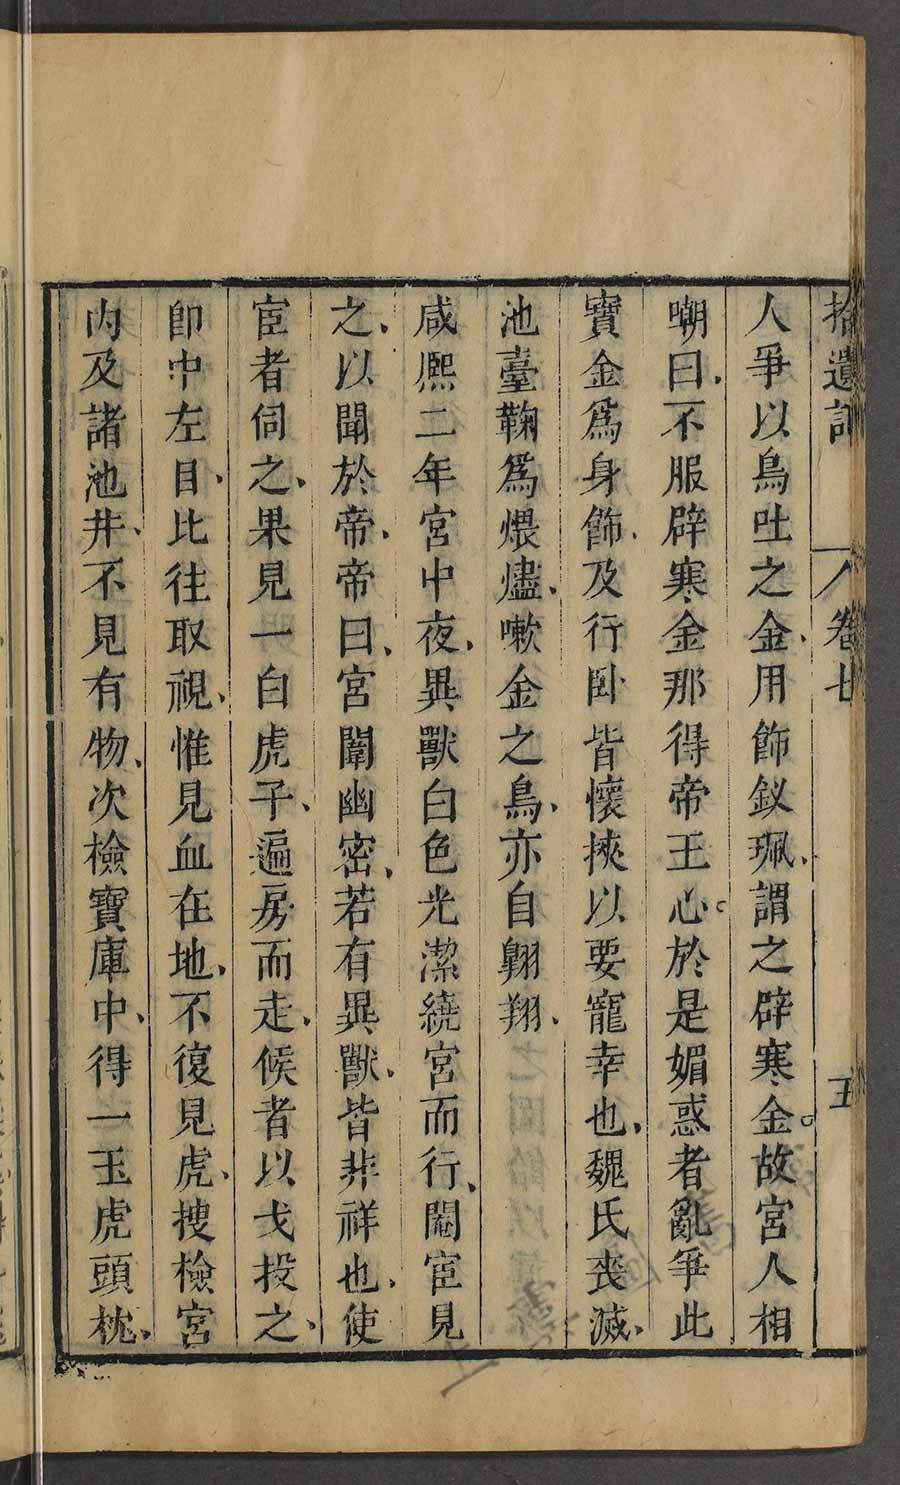 拾遺記 卷七 五
人爭以鳥吐之金、用飾釵珮、謂之辟寒金。故宮人相
嘲曰、不服辟寒金那得帝王心。於是媚惑者亂爭此
寶金爲身飾、及行卧皆懷挾以要寵幸也、魏氏喪滅、
池臺鞠爲煨燼、嗽金之鳥、亦自翺翔、
咸熈二年宮中夜、異獸白色光潔繞宮而行、閹宦見
之、以聞於帝、帝曰、宮闈幽密、若有異獸、皆非祥也、使
宦者伺之、果見一白虎子、遍房而走、候者以戈投之、
卽中左目、比往取視、惟見血在地、不復見虎、搜檢宮
内及諸池井、不見有物、次檢寶庫中、得一玉虎頭枕、